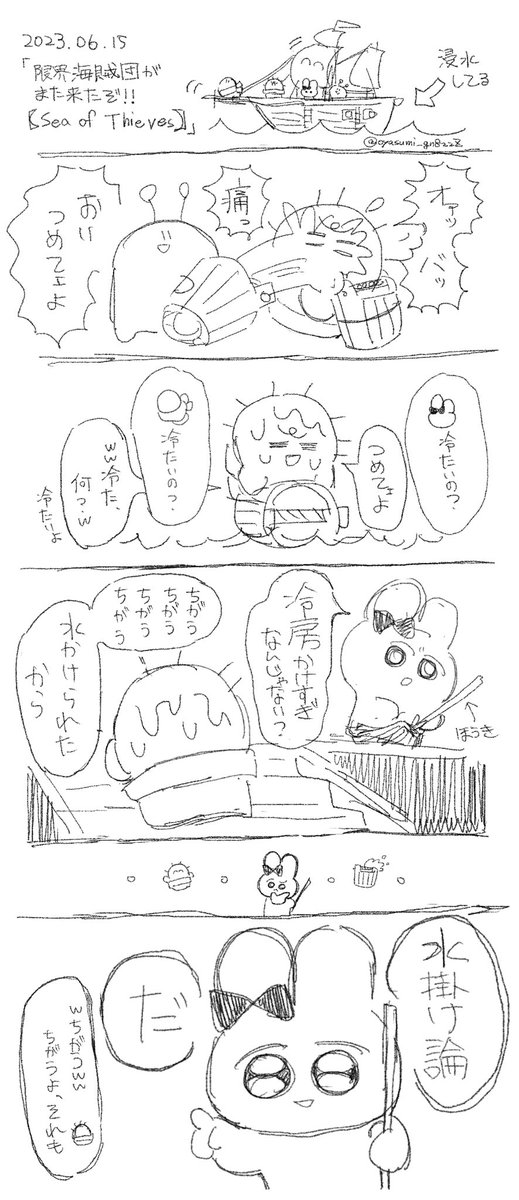 2023.06.15
「限界海賊団が
また来たぞ!!
【Sea of Thieves】」
浸水
してる
@oyasumi_gn8228
オァッ
バッ
痛っ
おい
つめてェよ
冷たいのっ?
つめてェよ
冷たいのっ?
ww冷た、
何っw
冷たいよ
冷房かけすぎ
なんじゃない?
ほうき
ちがう
ちがう
ちがう
ちがう
水かけられた
から
水掛け論
だ
wちがっww
ちがうよ、それも